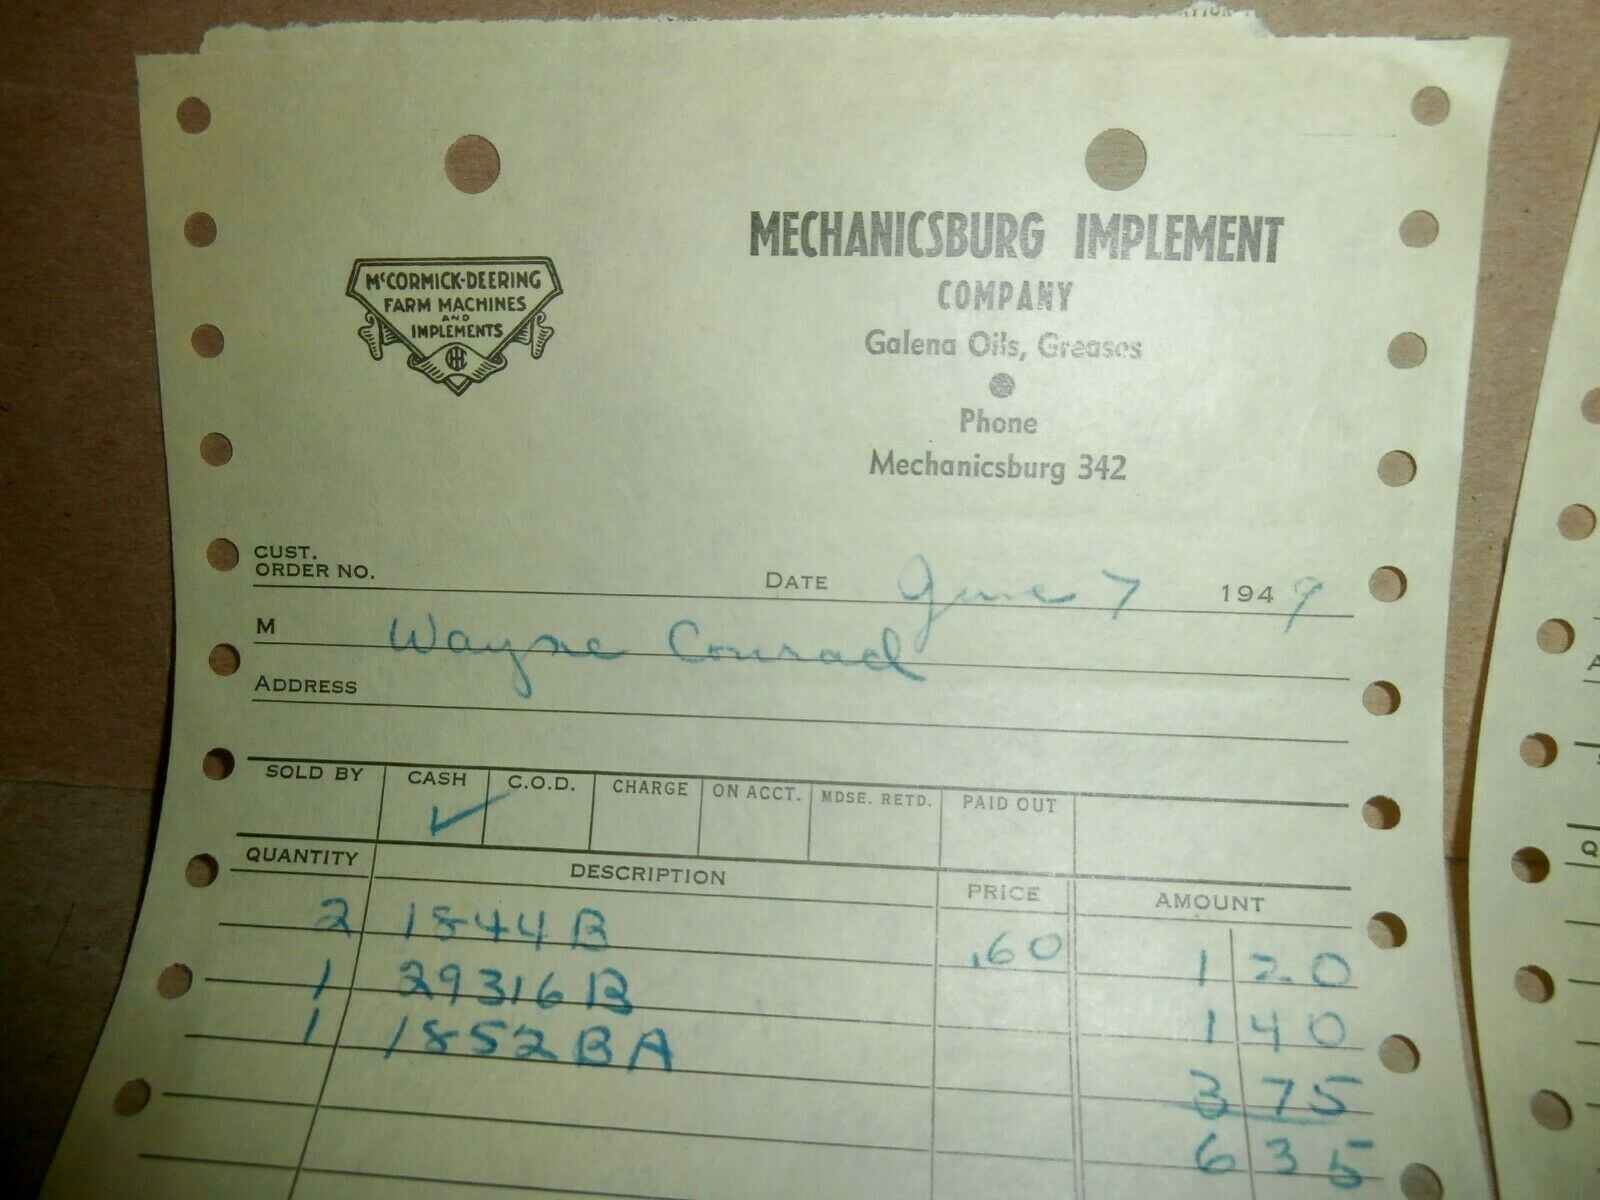 McCORMICK-DEERING
FARM MACHINES
AND
IMPLEMENTS
IHC
MECHANICSBURG IMPLEMENT
COMPANY
Galena Oils, Greases
Phone
Mechanicsburg 342
CUST.
ORDER NO.
DATE June 7 1949
M Wayne Conrad
ADDRESS
SOLD BY CASH C.O.D. CHARGE ON ACCT. MDSE. RETD. PAID OUT
✓
QUANTITY DESCRIPTION PRICE AMOUNT
2 1844B .60 1 20
1 29316B 1 40
1 1852BA 3 75
6 35